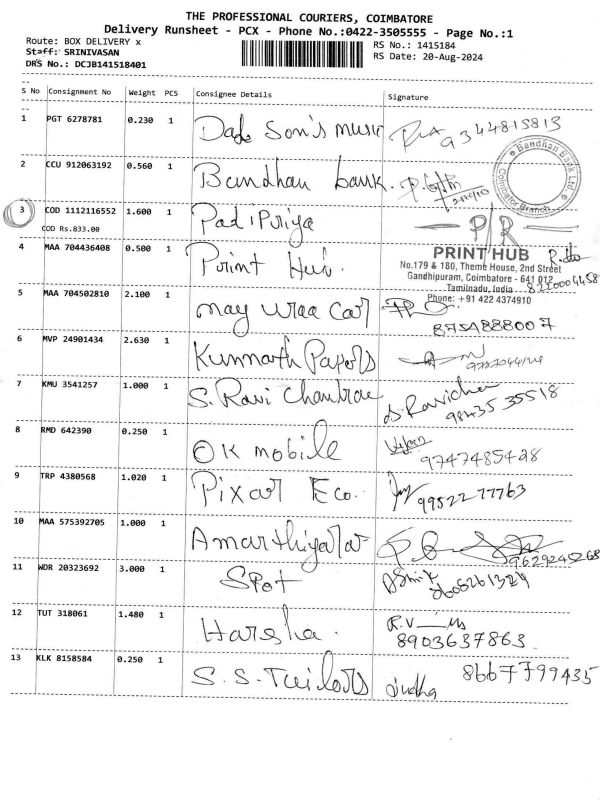 THE PROFESSIONAL COURIERS, COIMBATORE
Delivery Runsheet - PCX - Phone No.:0422-3505555 - Page No.:1
Route: BOX DELIVERY x
Staff: SRINIVASAN
DRS No.: DCJB141518401
RS No.: 1415184
RS Date: 20-Aug-2024
S No Consignment No Weight PCS Consignee Details Signature
1 PGT 6278781 0.230 1 Dads Son's music 9344815813
2 CCU 912063192 0.560 1 Bandhan bank.
Bandhan Bank Ltd.
Coimbatore Branch
3 COD 1112116552 1.600 1 PadiPriya P/R
COD Rs.833.00
4 MAA 704436408 0.500 1 Print Hub.
PRINT HUB
No.179 & 180, Theme House, 2nd Street
Gandhipuram, Coimbatore - 641 012
Tamilnadu, India
Phone: +91 422 4374910
5 MAA 704502810 2.100 1 may uraa car
6 MVP 24901434 2.630 1 Kunnath Papers
7 KMU 3541257 1.000 1 S. Ravi Chandran 98435 35518
8 RMD 642390 0.250 1 OK mobile 9747485428
9 TRP 4380568 1.020 1 Pixar Eco. 99522 77763
10 MAA 575392705 1.000 1 9629245268
11 WDR 20323692 3.000 1 Spot
12 TUT 318061 1.480 1 Harsha. 8903637863
13 KLK 8158584 0.250 1 S.S. Tailors 8667799435